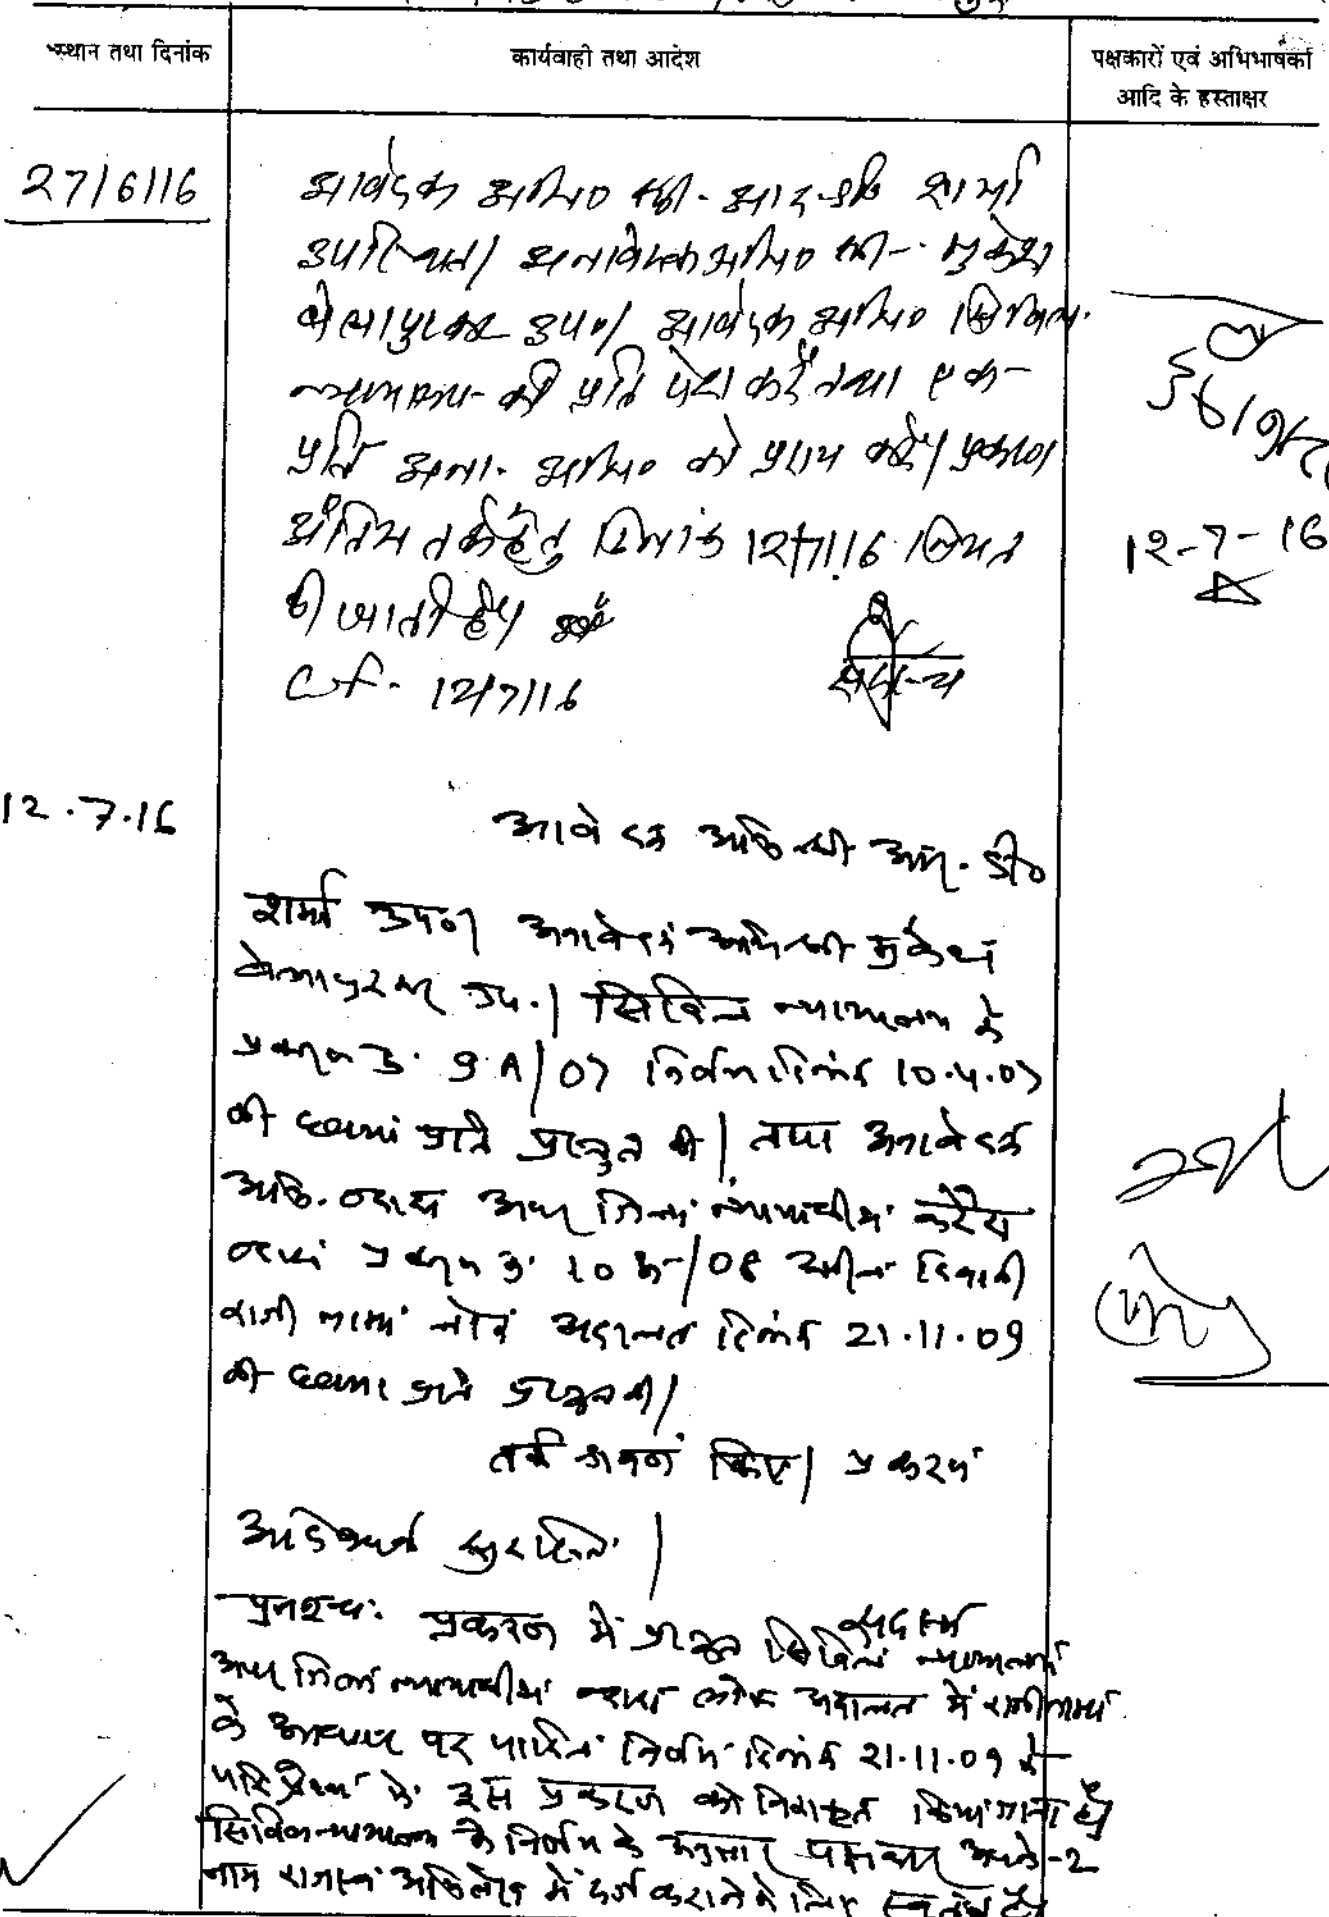 स्थान तथा दिनांक
कार्यवाही तथा आदेश
पक्षकारों एवं अभिभाषकों
आदि के हस्ताक्षर
27/6/16
आवेदक अभि० श्री. आर.डी शर्मा
उपस्थित। अनावेदक अभि० श्री. मुकेश
बेलापुरकर उप०। आवेदक अभि० सिविल
न्यायालय की प्रति पेश करें तथा एक
प्रति अना. अभि० को प्रदाय करें। प्रकरण
अंतिम तर्क हेतु दिनांक 12/7/16 नियत
की जाती है।
12/7/16
12-7-16
12.7.16
आवेदक अभि श्री आर. डी०
शर्मा उप०। अनावेदक अभि श्री मुकेश
बेलापुरकर उप.। सिविल न्यायालय के
प्रकरण क्र. 9A/07 निर्णय दिनांक 10.4.07
की छाया प्रति प्रस्तुत की। तथा अनावेदक
अभि. द्वारा अपर जिला न्यायाधीश करेरा
द्वारा प्रकरण क्र. 10 क/08 अपील दिवानी
राजी नामा लोक अदालत दिनांक 21.11.09
की छाया प्रति प्रस्तुत की।
तर्क श्रवण किए। प्रकरण
आदेशार्थ सुरक्षित।
पुनश्चः प्रकरण में प्रस्तुत सिविल न्यायालय
अपर जिला न्यायाधीश द्वारा लोक अदालत में राजीनामा
के आधार पर पारित निर्णय दिनांक 21.11.09 के
परिप्रेक्ष्य में इस प्रकरण को निराकृत किया जाता है।
सिविल न्यायालय के निर्णय के अनुसार पक्षकार अपने-2
नाम राजस्व अभिलेख में दर्ज कराने के लिए स्वतंत्र है।